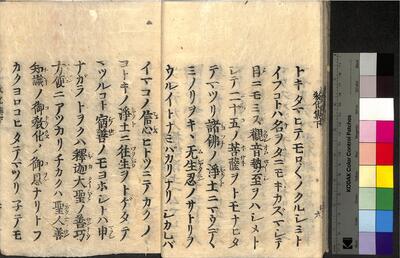 教化集下
トキタマヒテモロ〱ノクルシミト
イフコトハ名ヲタニモキカスマシテ
目ニモミス觀音勢至ヲハシメト
シテ二十五ノ菩薩ヲトモナヒタ
テマツリ諸佛ノ淨土ニマウテ〱
ミノリヲキヽ无生忍ノサトリヲ
ウルイトナミハカリナリシカレハ
イマコノ信心ヒトツニテカクノ
コトキノ淨土ニ往生ヲトケタテ
マツルコト宿善ノモヨホシトハ申
ナカラトヲクハ釋迦大聖ノ善巧
方便ニアツカリチカクハ聖人善
知識ノ御敎化ノ御恩ナリトフ
カクヨロコヒタテマツリ子テモ
KODAK Color Control Patches